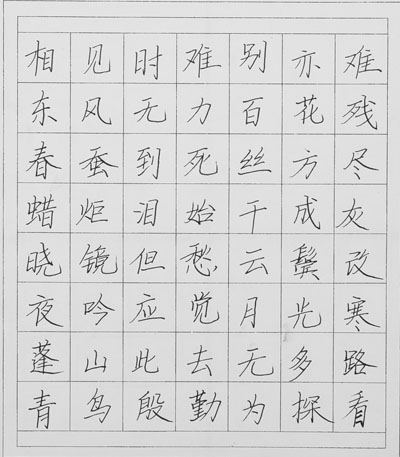 相见时难别亦难
东风无力百花残
春蚕到死丝方尽
蜡炬泪始干成灰
晓镜但愁云鬓改
夜吟应觉月光寒
蓬山此去无多路
青鸟殷勤为探看